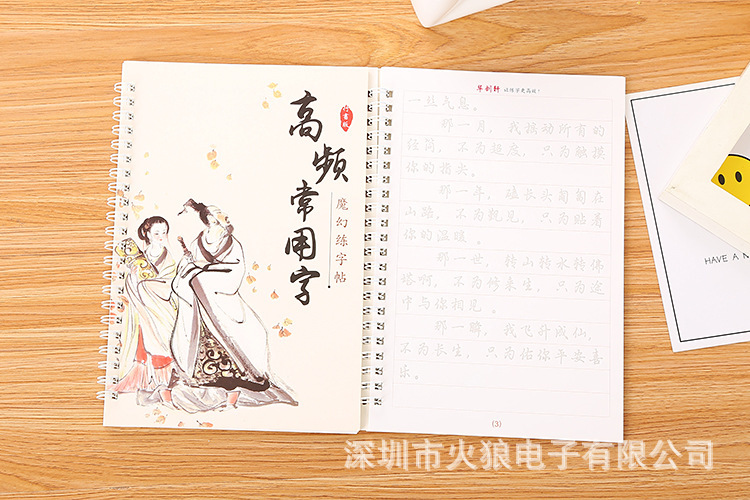 高频常用字
魔幻练字帖
行书版
华剑轩 让练字更高效!
一丝气息。
那一月,我摇动所有的
经筒,不为超度,只为触摸
你的指尖。
那一年,磕长头匍匐在
山路,不为觐见,只为贴着
你的温暖。
那一世,转山转水转佛
塔啊,不为修来生,只为途
中与你相见。
那一瞬,我飞升成仙,
不为长生,只为佑你平安喜
乐。
(3)
HAVE A N
深圳市火狼电子有限公司